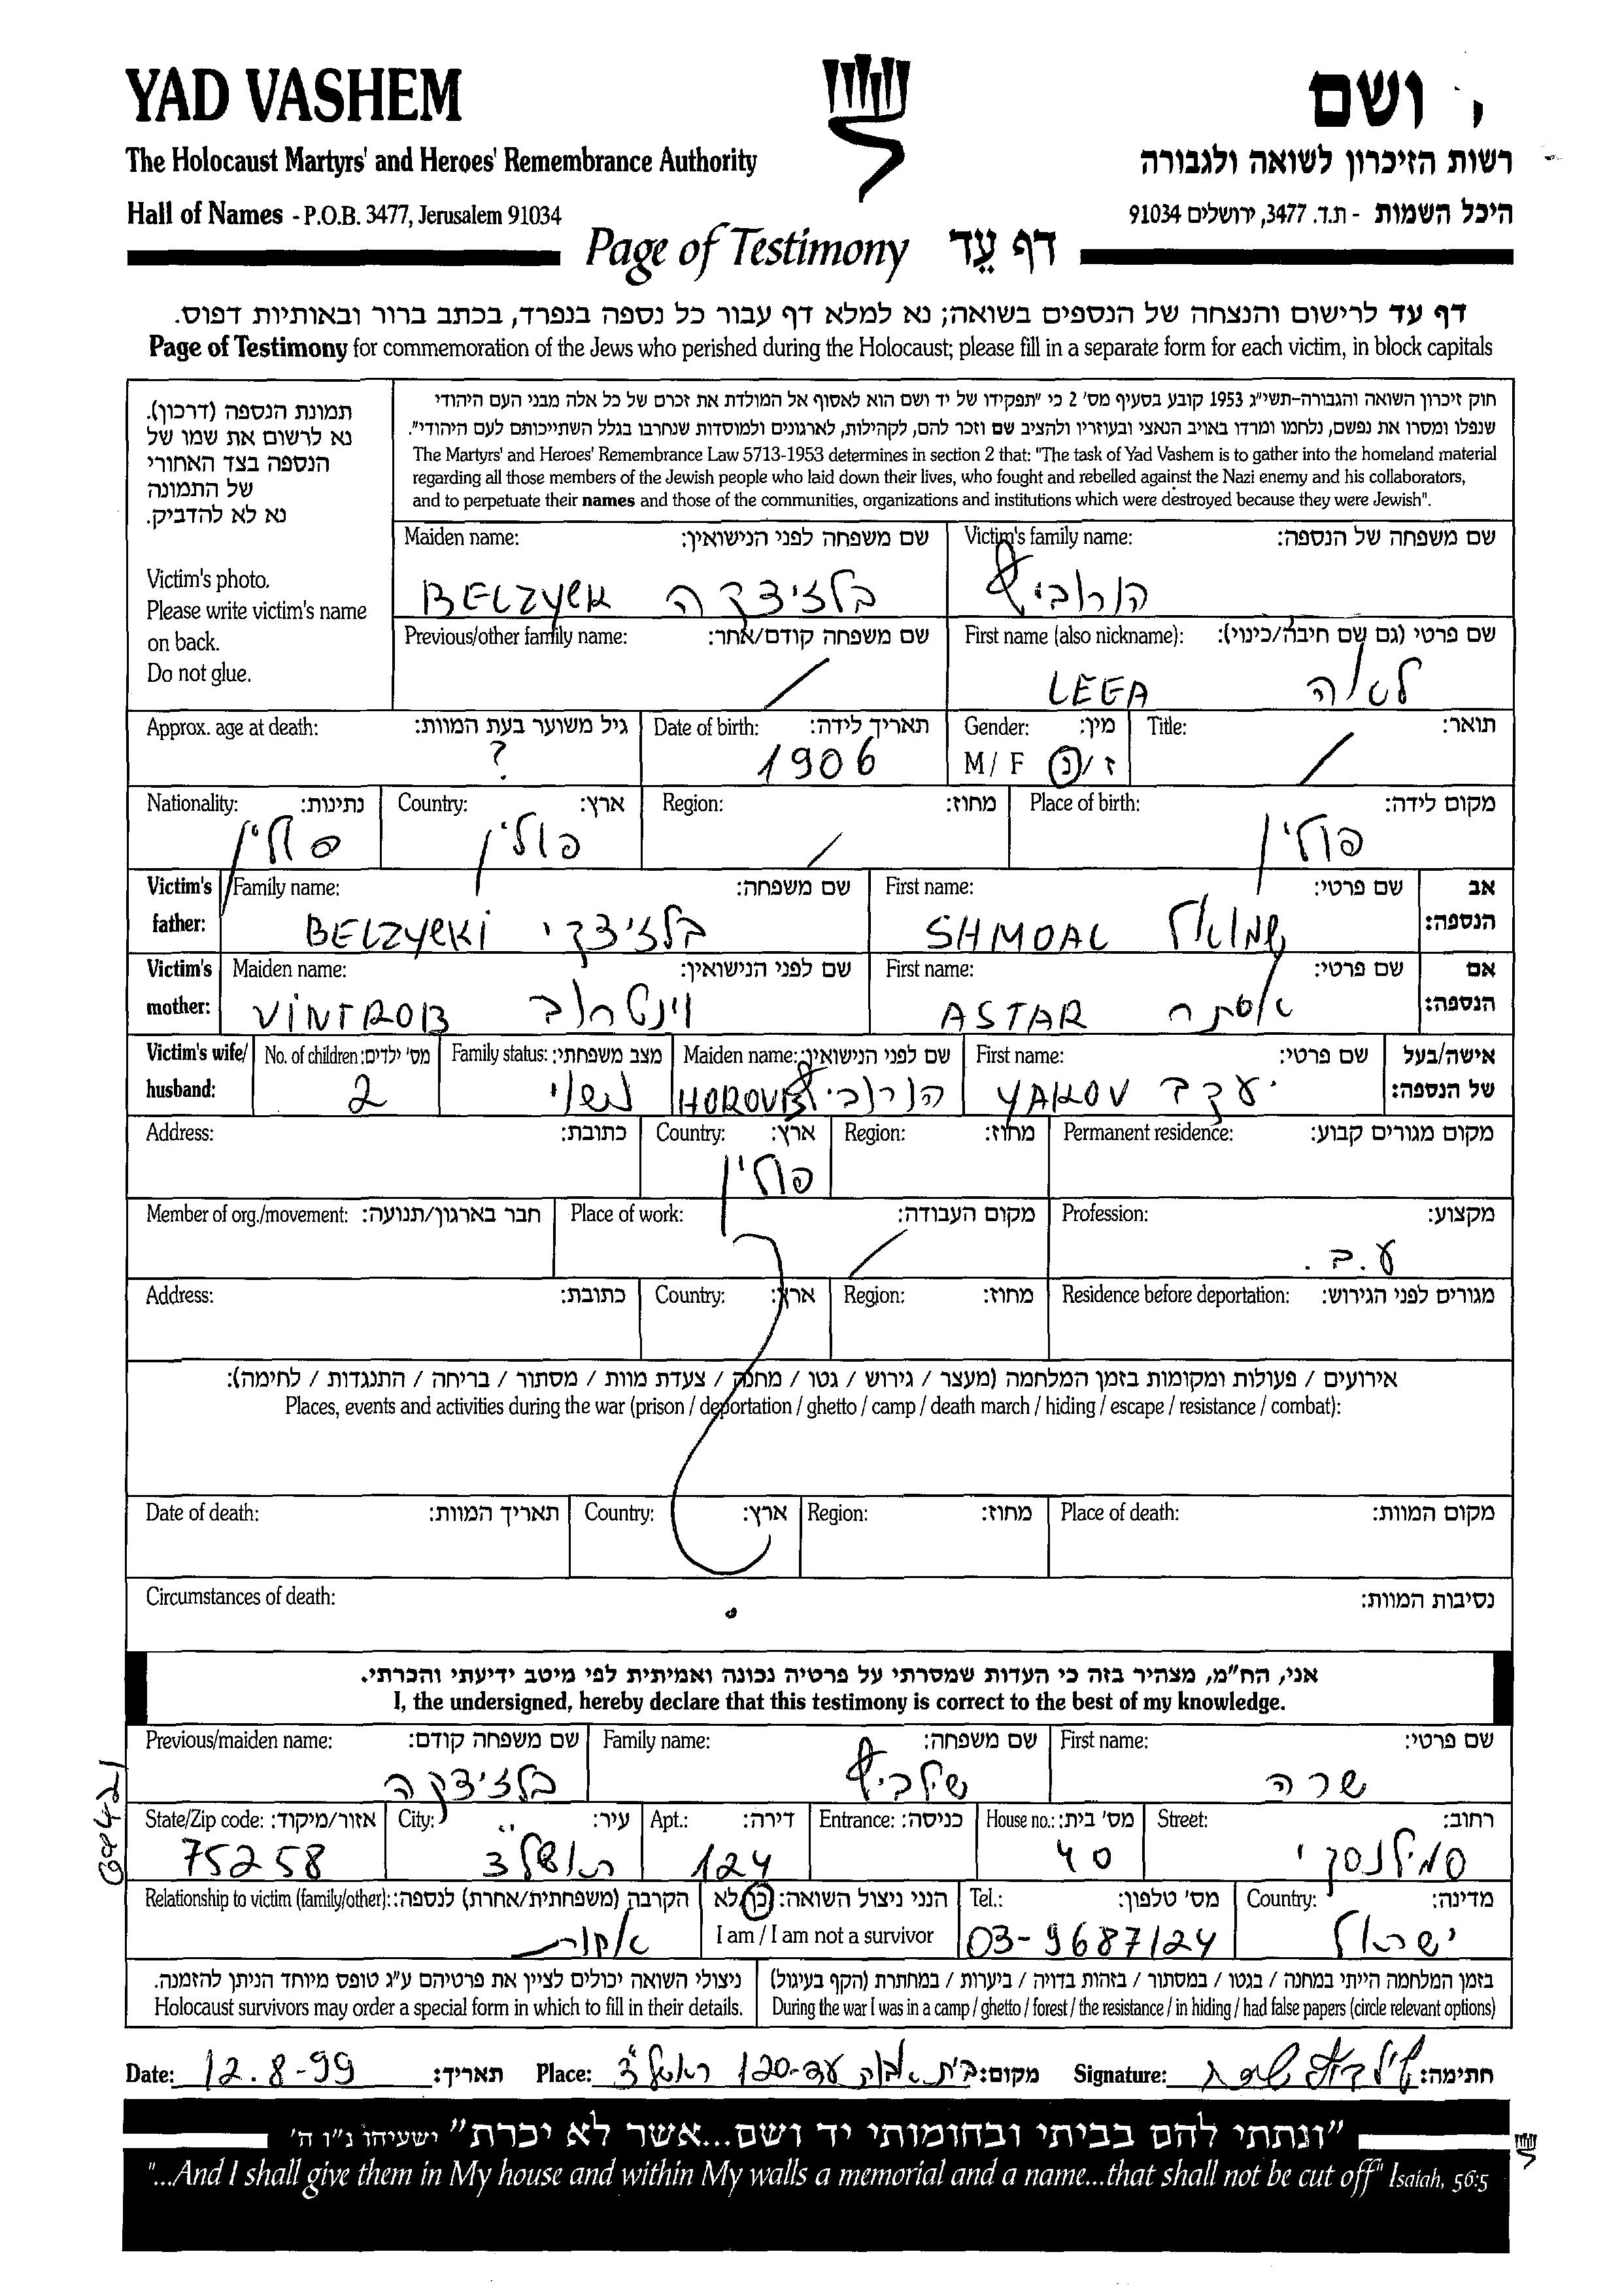 YAD VASHEM
י ושם
The Holocaust Martyrs' and Heroes' Remembrance Authority
רשות הזיכרון לשואה ולגבורה
Hall of Names - P.O.B. 3477, Jerusalem 91034
היכל השמות - ת.ד. 3477, ירושלים 91034
Page of Testimony דף עֵד
דף עד לרישום והנצחה של הנספים בשואה; נא למלא דף עבור כל נספה בנפרד, בכתב ברור ובאותיות דפוס.
Page of Testimony for commemoration of the Jews who perished during the Holocaust; please fill in a separate form for each victim, in block capitals
תמונת הנספה (דרכון).
נא לרשום את שמו של
הנספה בצד האחורי
של התמונה
נא לא להדביק.
Victim's photo.
Please write victim's name
on back.
Do not glue.
חוק זיכרון השואה והגבורה-תשי"ג 1953 קובע בסעיף מס' 2 כי "תפקידו של יד ושם הוא לאסוף אל המולדת את זכרם של כל אלה מבני העם היהודי
שנפלו ומסרו את נפשם, נלחמו ומרדו באויב הנאצי ובעוזריו ולהציב שם וזכר להם, לקהילות, לארגונים ולמוסדות שנחרבו בגלל השתייכותם לעם היהודי".
The Martyrs' and Heroes' Remembrance Law 5713-1953 determines in section 2 that: "The task of Yad Vashem is to gather into the homeland material
regarding all those members of the Jewish people who laid down their lives, who fought and rebelled against the Nazi enemy and his collaborators,
and to perpetuate their names and those of the communities, organizations and institutions which were destroyed because they were Jewish".
Victim's family name: שם משפחה של הנספה:
הורוביץ
Maiden name: שם משפחה לפני הנישואין:
BELZYCK בלזיצקה
First name (also nickname): שם פרטי (גם שם חיבה/כינוי):
LEEA לאה
Previous/other family name: שם משפחה קודם/אחר:
/
Title: תואר:
/
Gender: מין:
M / F ז / נ
Date of birth: תאריך לידה:
1906
Approx. age at death: גיל משוער בעת המוות:
?
Place of birth: מקום לידה:
פולין
Region: מחוז:
/
Country: ארץ:
פולין
Nationality: נתינות:
פולין
Victim's father: אב הנספה:
First name: שם פרטי:
SHMOAL שמואל
Family name: שם משפחה:
BELZYCKI בלזיצקי
Victim's mother: אם הנספה:
First name: שם פרטי:
ASTAR אסתר
Maiden name: שם לפני הנישואין:
VINTROB וינטרוב
Victim's wife/ husband: אישה/בעל של הנספה:
First name: שם פרטי:
YAKOV יעקב
Maiden name: שם לפני הנישואין:
הורוביץ
Family status: מצב משפחתי:
נשוי
No. of children: מס' ילדים:
2
Permanent residence: מקום מגורים קבוע:
Region: מחוז:
Country: ארץ:
פולין
Address: כתובת:
Profession: מקצוע:
ע.ב.
Place of work: מקום העבודה:
/
Member of org./movement: חבר בארגון/תנועה:
Residence before deportation: מגורים לפני הגירוש:
Region: מחוז:
Country: ארץ:
Address: כתובת:
אירועים / פעולות ומקומות בזמן המלחמה (מעצר / גירוש / גטו / מחנה / צעדת מוות / מסתור / בריחה / התנגדות / לחימה):
Places, events and activities during the war (prison / deportation / ghetto / camp / death march / hiding / escape / resistance / combat):
?
Place of death: מקום המוות:
Region: מחוז:
Country: ארץ:
Date of death: תאריך המוות:
Circumstances of death: נסיבות המוות:
אני, הח"מ, מצהיר בזה כי העדות שמסרתי על פרטיה נכונה ואמיתית לפי מיטב ידיעתי והכרתי.
I, the undersigned, hereby declare that this testimony is correct to the best of my knowledge.
First name: שם פרטי:
שרה
Family name: שם משפחה:
שילביץ
Previous/maiden name: שם משפחה קודם:
בלזיצקה
Street: רחוב:
סמילנסקי
House no.: מס' בית:
40
Entrance: כניסה:
Apt.: דירה:
124
City: עיר:
ראשל"צ
State/Zip code: אזור/מיקוד:
75258
Country: מדינה:
ישראל
Tel.: מס' טלפון:
03-9687124
הנני ניצול השואה: כן/לא
I am / I am not a survivor
Relationship to victim (family/other): הקרבה (משפחתית/אחרת) לנספה:
אחות
בזמן המלחמה הייתי במחנה / בגטו / במסתור / בזהות בדויה / ביערות / במחתרת (הקף בעיגול)
During the war I was in a camp / ghetto / forest / the resistance / in hiding / had false papers (circle relevant options)
ניצולי השואה יכולים לציין את פרטיהם ע"ג טופס מיוחד הניתן להזמנה.
Holocaust survivors may order a special form in which to fill in their details.
Date: 12.8-99 תאריך:
Place: ראשל"צ מקום:
Signature: חתימה:
"ונתתי להם בביתי ובחומותי יד ושם...אשר לא יכרת" ישעיהו נ"ו ה'
"...And I shall give them in My house and within My walls a memorial and a name...that shall not be cut off" Isaiah, 56:5